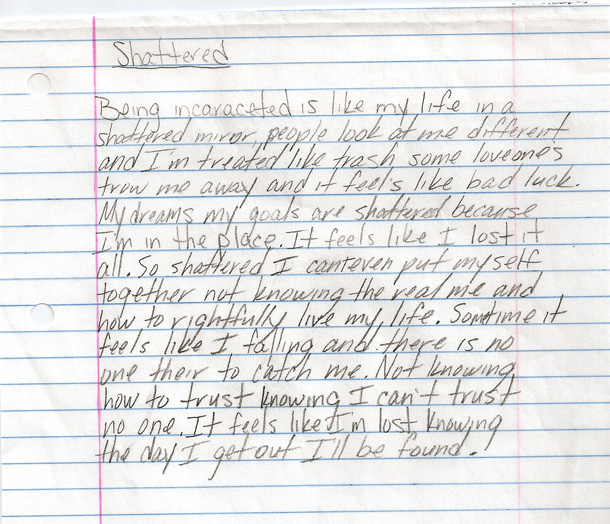 Shattered
Being incaraceted is like my life in a
shattered mirror, people look at me different
and I'm treated like trash some loveone's
trow me away and it feel's like bad luck.
My dreams my goals are shattered because
I'm in the place. It feels like I lost it
all. So shattered I canteven put myself
together not knowing the real me and
how to rightfully live my life. Somtime it
feels like I falling and there is no
one their to catch me. Not knowing
how to trust knowing I can't trust
no one. It feels like I'm lost knowing
the day I get out I'll be found.